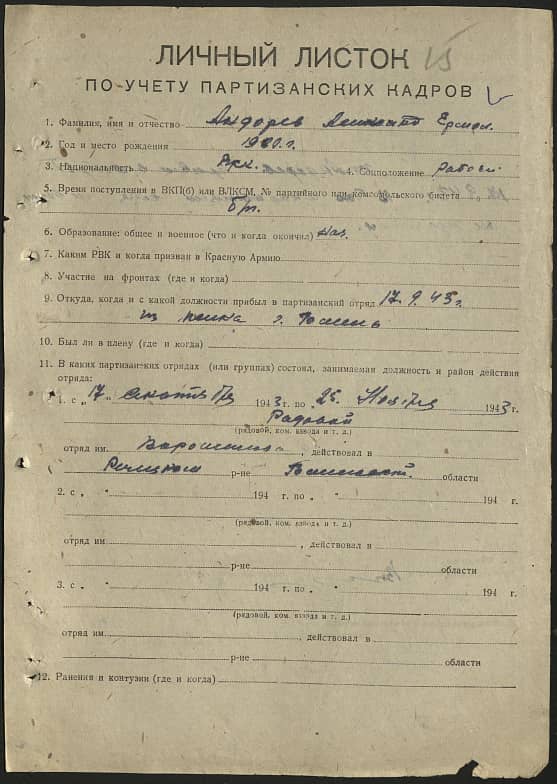 15
ЛИЧНЫЙ ЛИСТОК
ПО УЧЕТУ ПАРТИЗАНСКИХ КАДРОВ
1. Фамилия, имя и отчество
2. Год и место рождения
3. Национальность 4. Соцположение
5. Время поступления в ВКП(б) или ВЛКСМ, № партийного или комсомольского билета
б/п.
6. Образование: общее и военное (что и когда окончил) нач.
7. Каким РВК и когда призван в Красную Армию
8. Участие на фронтах (где и когда)
9. Откуда, когда и с какой должности прибыл в партизанский отряд 17.9.43 г.
из
10. Был ли в плену (где и когда)
11. В каких партизанских отрядах (или группах) состоял, занимаемая должность и район действия
отряда:
1. с „ 17 " 1943 г. по „ 25. Ноября 1943 г.
Рядовой
(рядовой, ком. взвода и т. д.)
отряд им. Ворошилова, действовал в
Речицком р-не области
2. с „ " 194 г. по „ " 194 г.
(рядовой, ком. взвода и т. д.)
отряд им. , действовал в
р-не области
3. с „ " 194 г. по „ " 194 г.
(рядовой, ком. взвода и т. д.)
отряд им. , действовал в
р-не области
12. Ранения и контузии (где и когда)